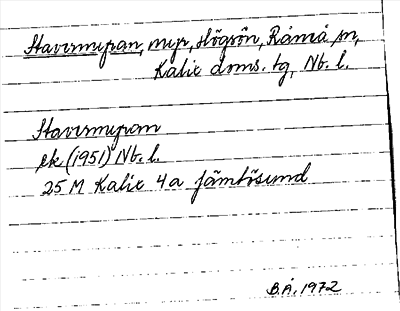 Stavermyran, myr, Högsön, Råneå sn,
Kalix doms. tg, Nb. l.
Stavermyran
ek (1951) Nb. l.
25 M Kalix 4a Jämtösund
B.Å, 1972